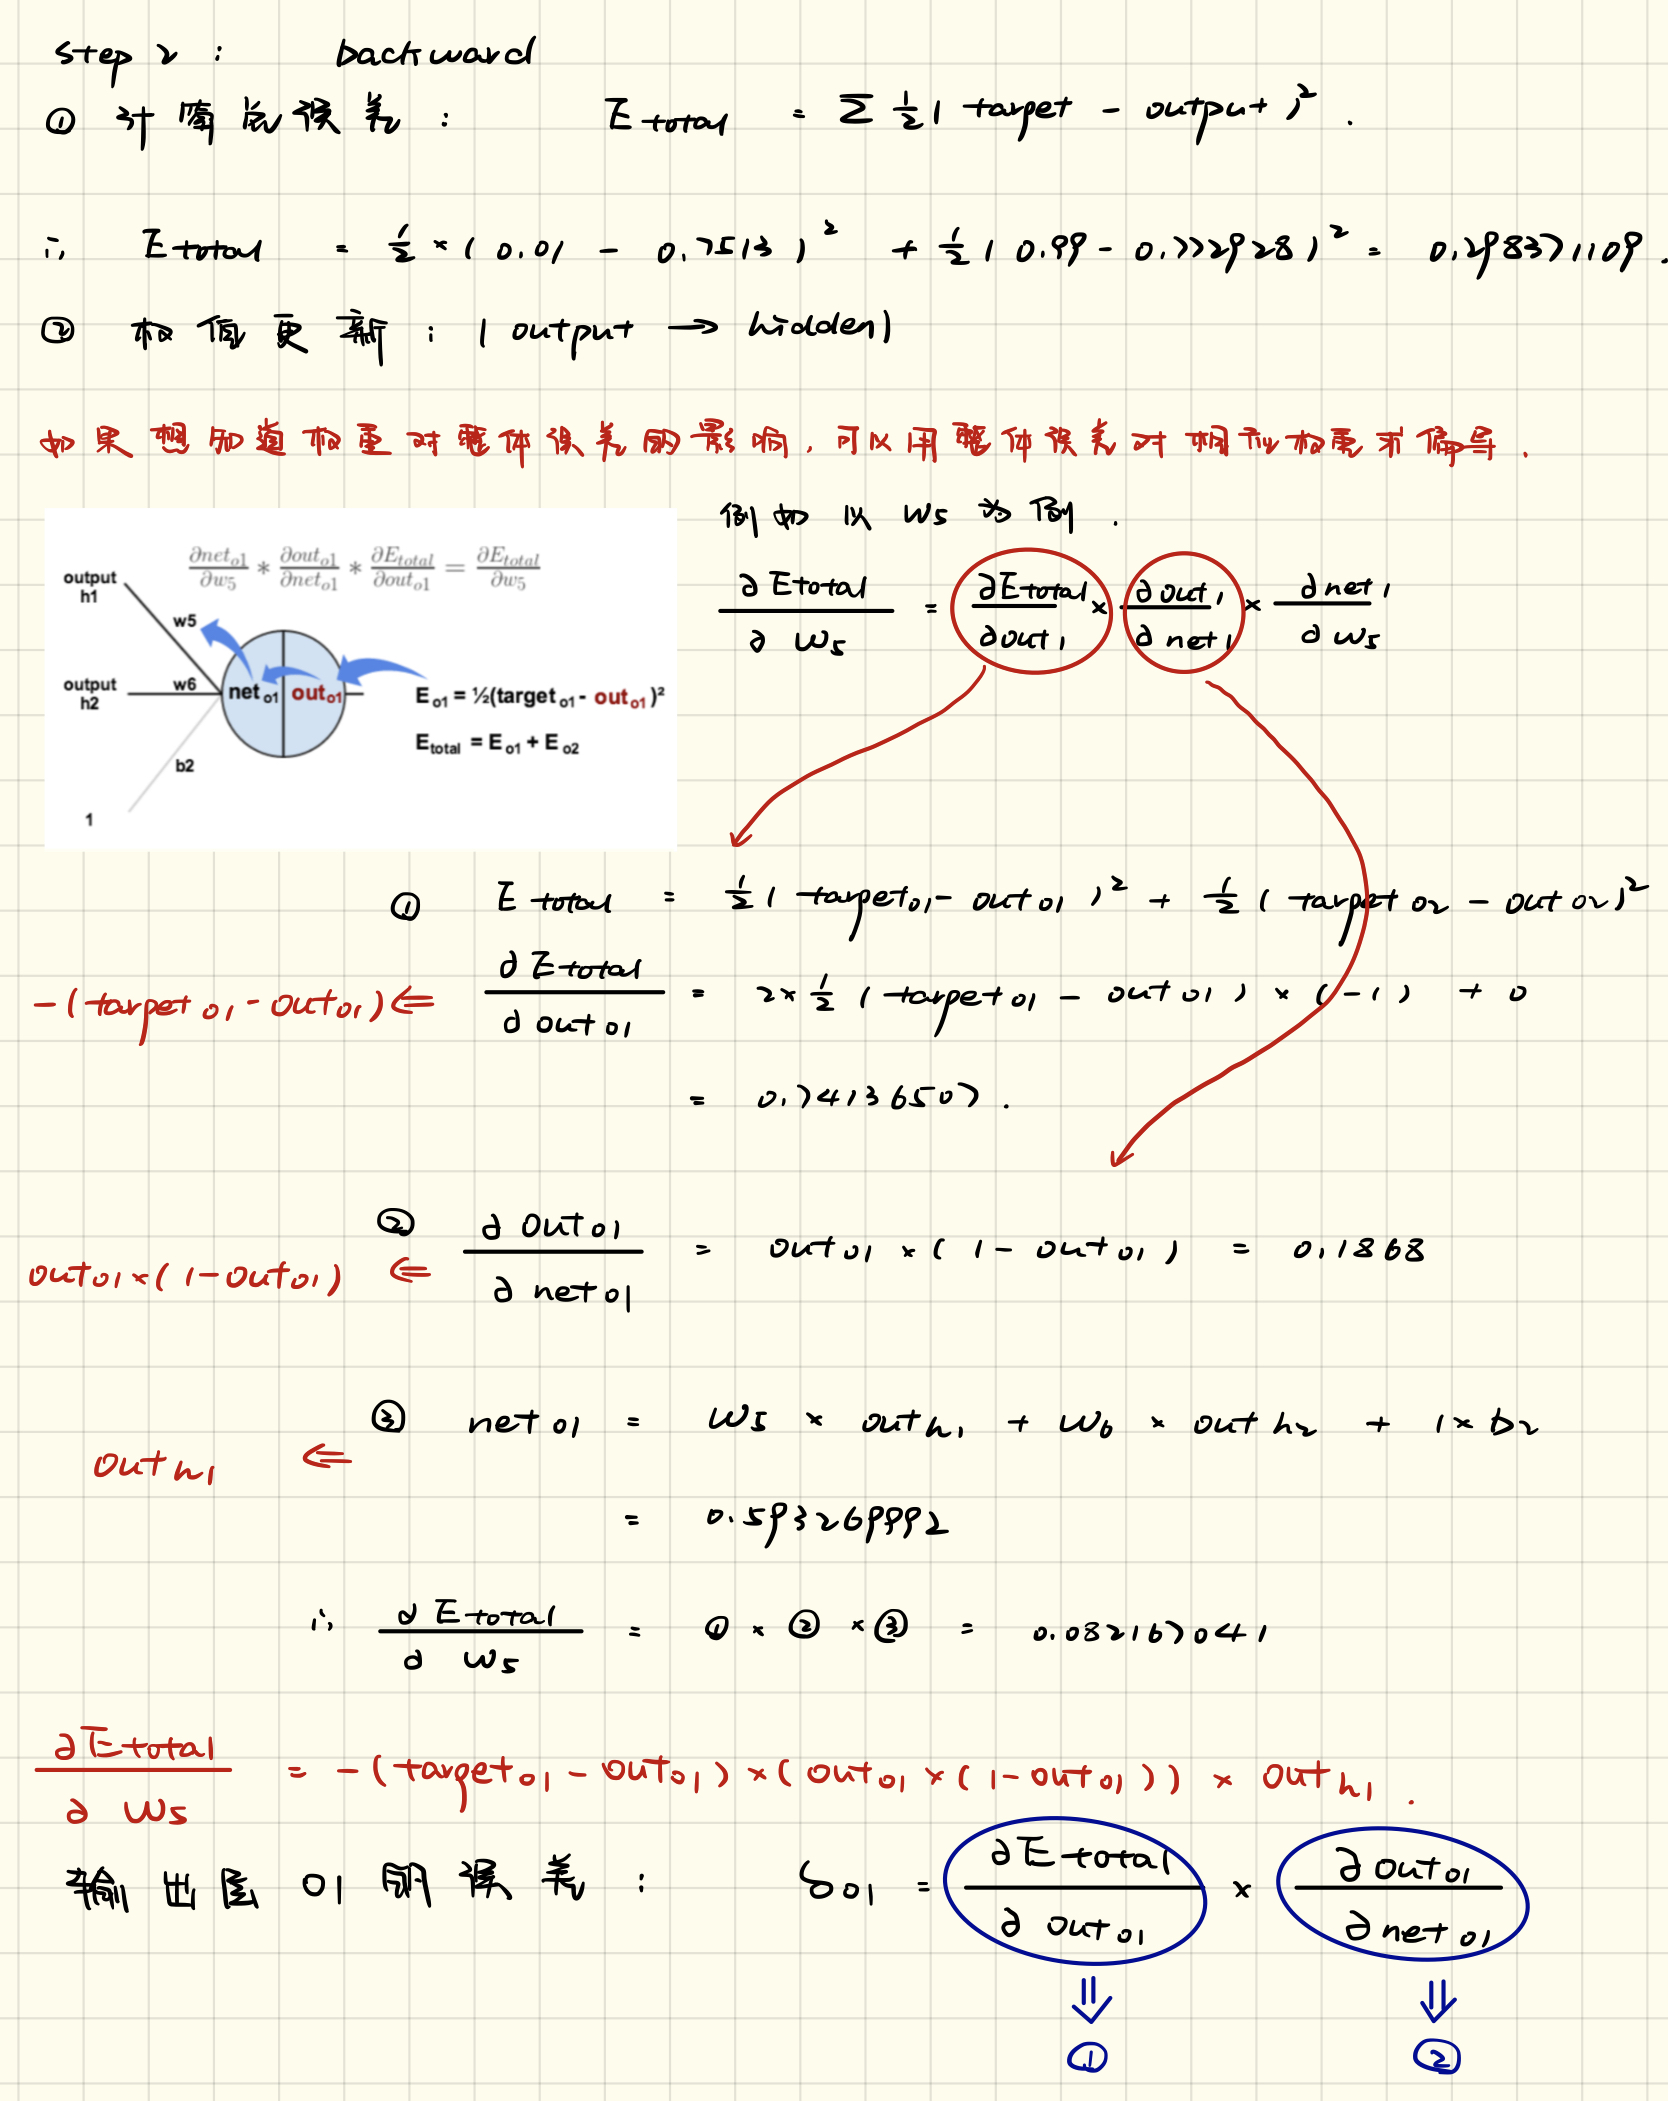 step 2 : backward
① 计算总误差 : E total = Σ ½ ( target - output )² .
∴ E total = ½ × ( 0.01 - 0.7513 )² + ½ ( 0.99 - 0.772928 )² = 0.298371109 .
② 权值更新 : ( output → hidden )
如果想知道权重对整体误差的影响,可以用整体误差对相应权重求偏导 .
例如以 w5 为例 .
∂E total / ∂w5 = ∂E total / ∂out1 × ∂out1 / ∂net1 × ∂net1 / ∂w5
∂net_o1 / ∂w5 * ∂out_o1 / ∂net_o1 * ∂E_total / ∂out_o1 = ∂E_total / ∂w5
output h1
w5
output h2
w6
net o1
out o1
b2
1
E o1 = ½(target o1 - out o1 )²
E total = E o1 + E o2
① E total = ½ ( target o1 - out o1 )² + ½ ( target o2 - out o2 )²
-( target o1 - out o1 ) ⇐ ∂E total / ∂out o1 = 2 × ½ ( target o1 - out o1 ) × (-1) + 0
= 0.74136507 .
out o1 × ( 1 - out o1 ) ⇐ ② ∂out o1 / ∂net o1 = out o1 × ( 1 - out o1 ) = 0.1868
③ net o1 = w5 × out h1 + w6 × out h2 + 1 × b2
out h1 ⇐
= 0.593269992
∴ ∂E total / ∂w5 = ① × ② × ③ = 0.082167041
∂E total / ∂w5 = -( target o1 - out o1 ) × ( out o1 × ( 1 - out o1 )) × out h1 .
输出层 o1 的误差 : δ o1 = ∂E total / ∂out o1 × ∂out o1 / ∂net o1
⇓ ⇓
① ②